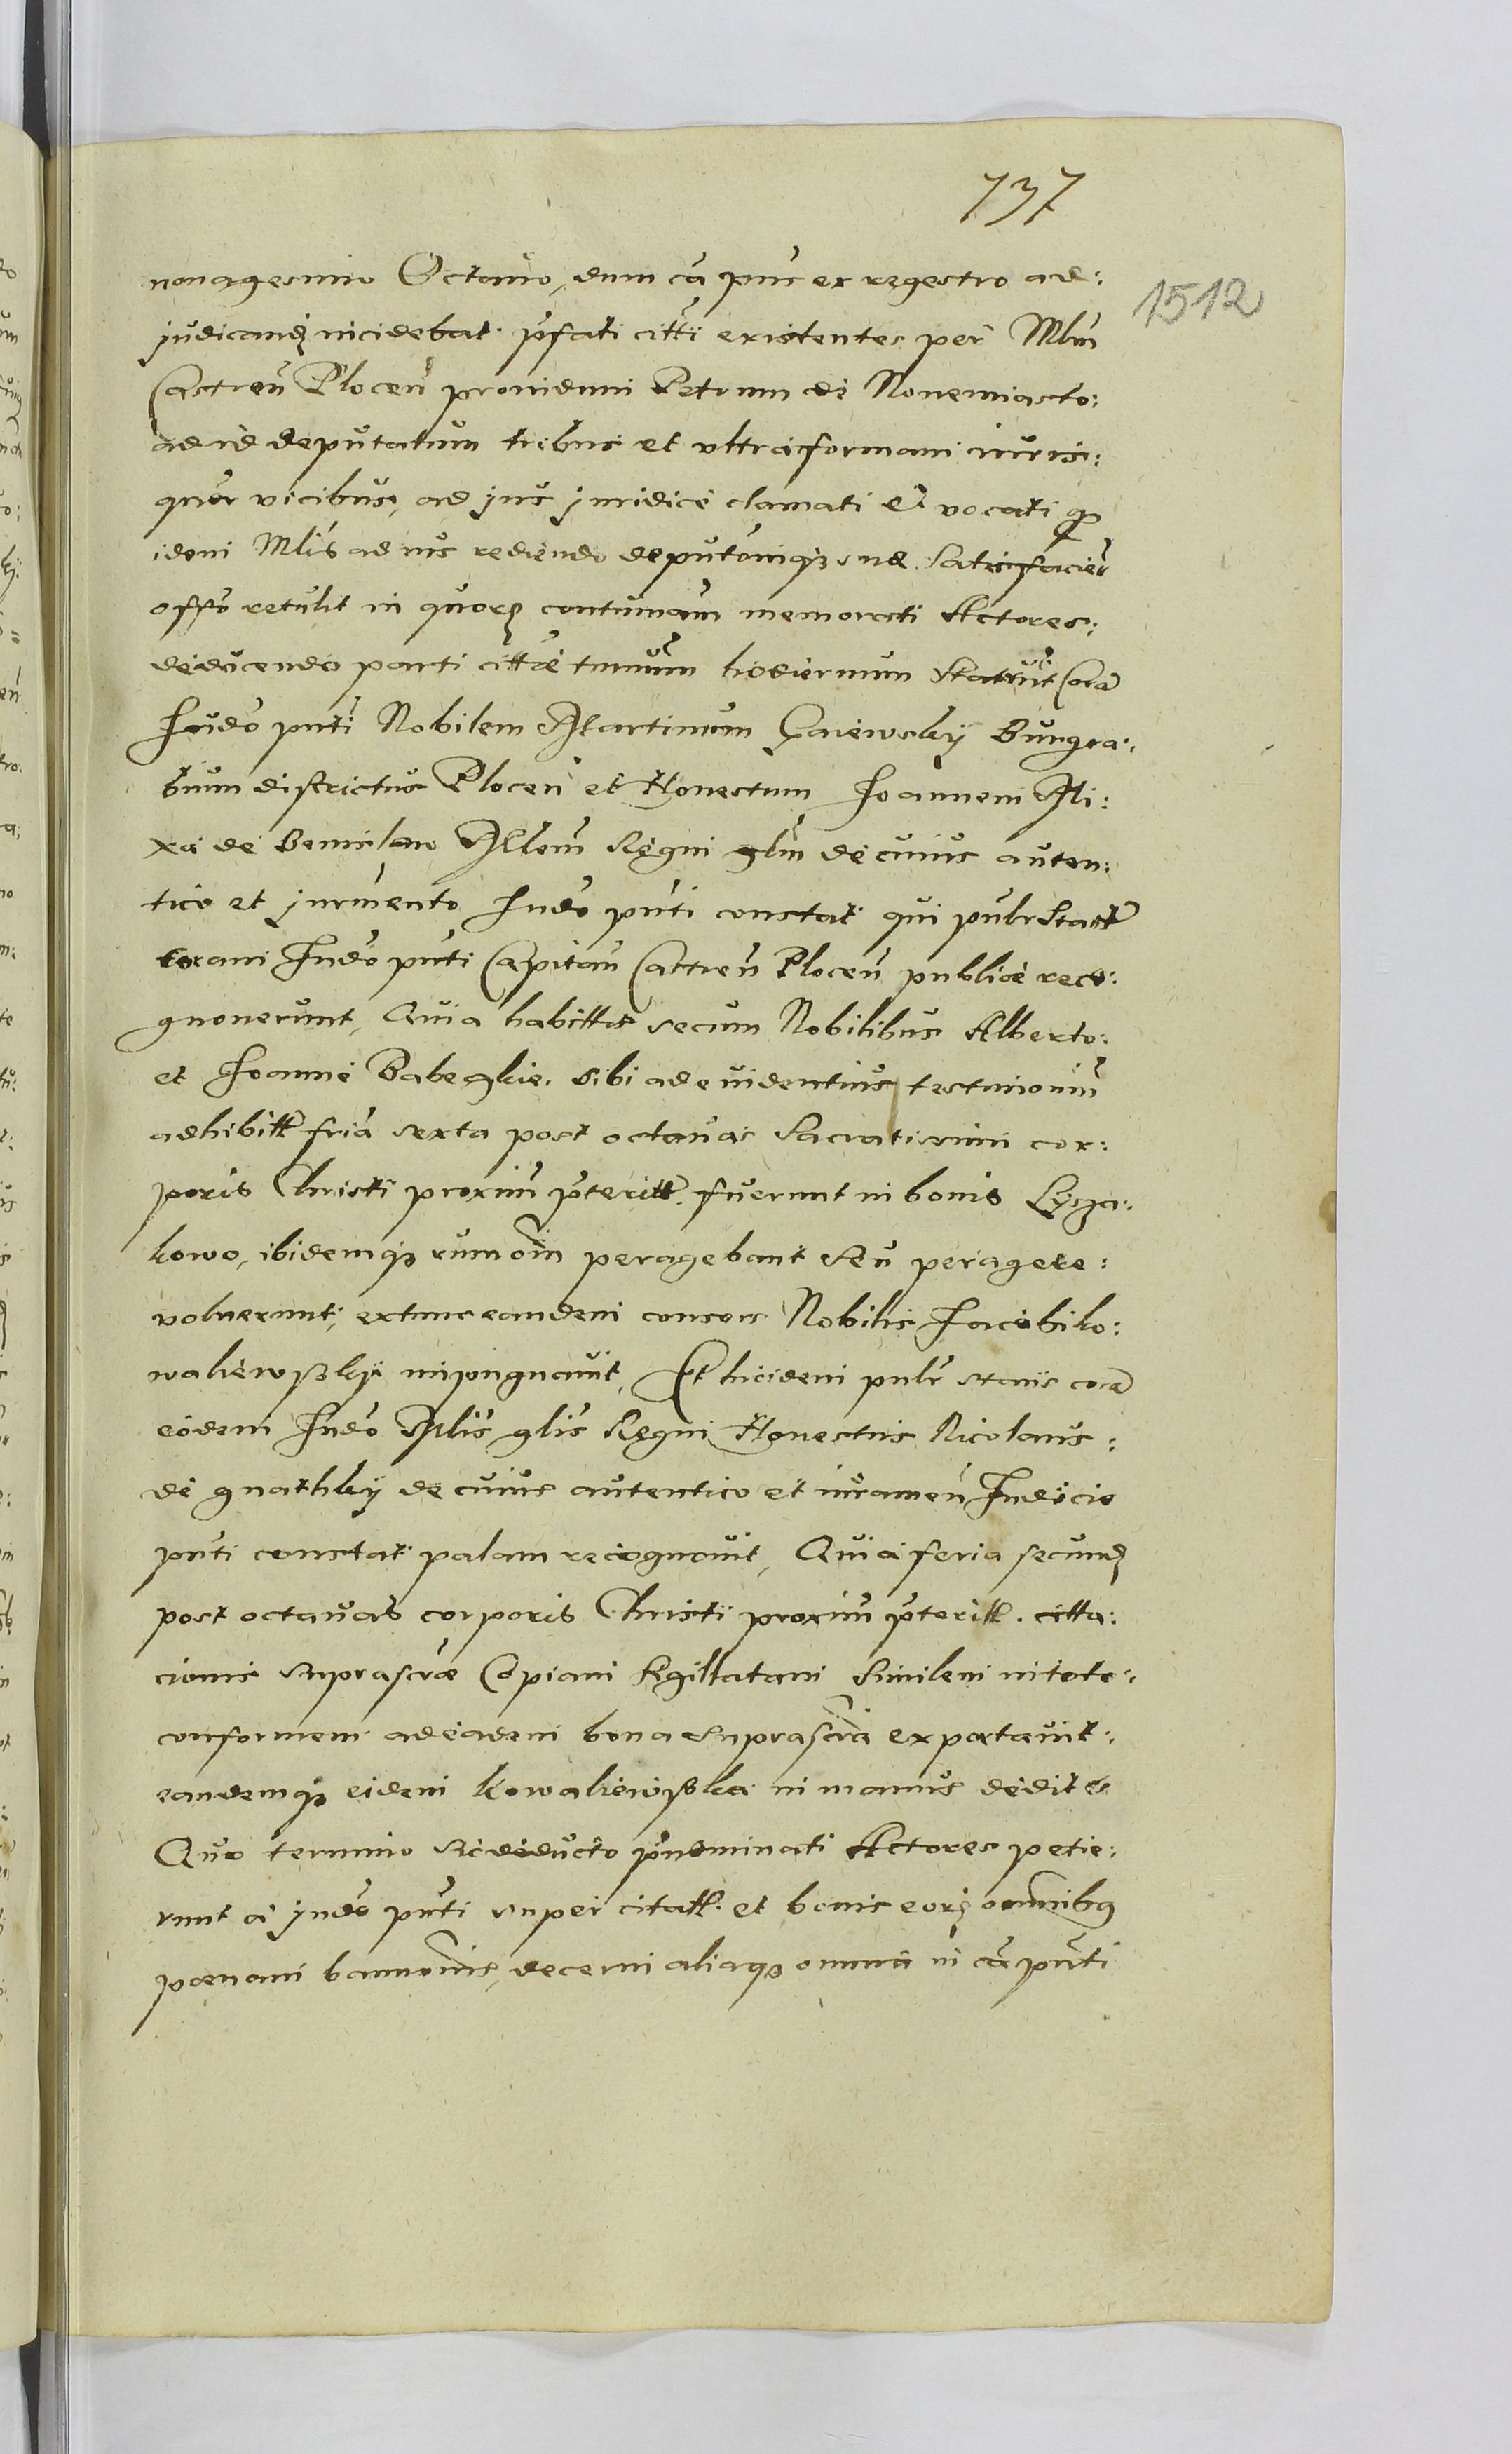 737
1512
nonagesimo Octavo, dum ca pns ex regestro ad:
judicand incidebat. pfati citti existentes per Mlm
Castren Plocen providum Petrum de Novemiasto:
ad id deputatum tribus et ultra formam iuris:
quer vicibus, ad jus juridice clamati et vocati qz
idem Mlis ad nos rediendo deputoniqz suae satisfacien
offo retulit in quorz contumam memorati Actores:
deducendo parti cittae tnuum hodiernum Statuit Cora
Judo pnti Nobilem Martinum Gaiewsky Burgra:
bium districtus Plocen et Honestum Joannem Mi:
xa de Bomislaw Mllem Regni glm de cuius auten:
tico et jurmento Judo pnti constat qui pnlr stant
coram Judo pnti Capitan Castren Plocen publice reco:
gnoverunt, Quia habittis secum Nobilibus Alberto:
et Joanne Babeczkie. sibi ad evidentius testimonium
adhibitt fria sexta post octavas Sacratissimi cor:
poris Christi proxim pteritt. fuerunt in bonis Lycza:
kowo, ibidemqz rumoem peragebant Seu peragere:
voluerunt, extunc eandem consors Nobilis Jacobi ko:
waliewsky impugnavit, Et hic idem pnlr stans cora
eodem Judo Mlis glis Regni Honestus Nicolaus:
de gnathky de cuius autentico et iuramen Judicio
pnti constat palam recognovit, Quia feria secund
post octavas corporis Christi proxim pteritt. citta:
cionis suprascrae Copiam Sigillatam Similem in toto:
conformem ad eadem bona suprascra exportavit:
eandemqz eidem kowaliewska in manus dedit etc
Quo termino sic deducto pnominati Actores petie:
runt a judo pnti super citatt. et bonis eorz omnibq
poenam bannonis, decerni aliaqz omnia in ca pnti